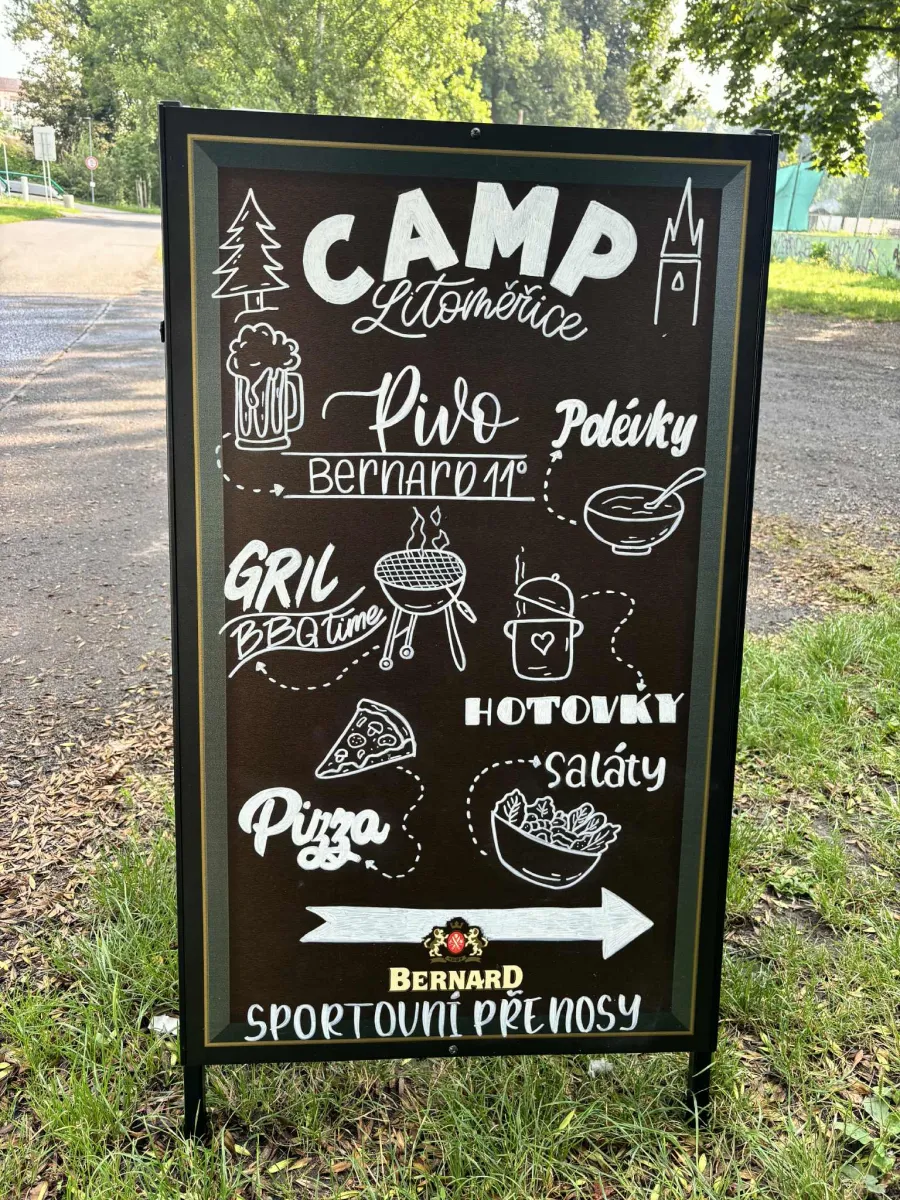 CAMP
Litoměřice
Pivo
BERNARD 11°
Polévky
GRIL
BBQ time
HOTOVKY
Saláty
Pizza
BERNARD
SPORTOVNÍ PŘENOSY